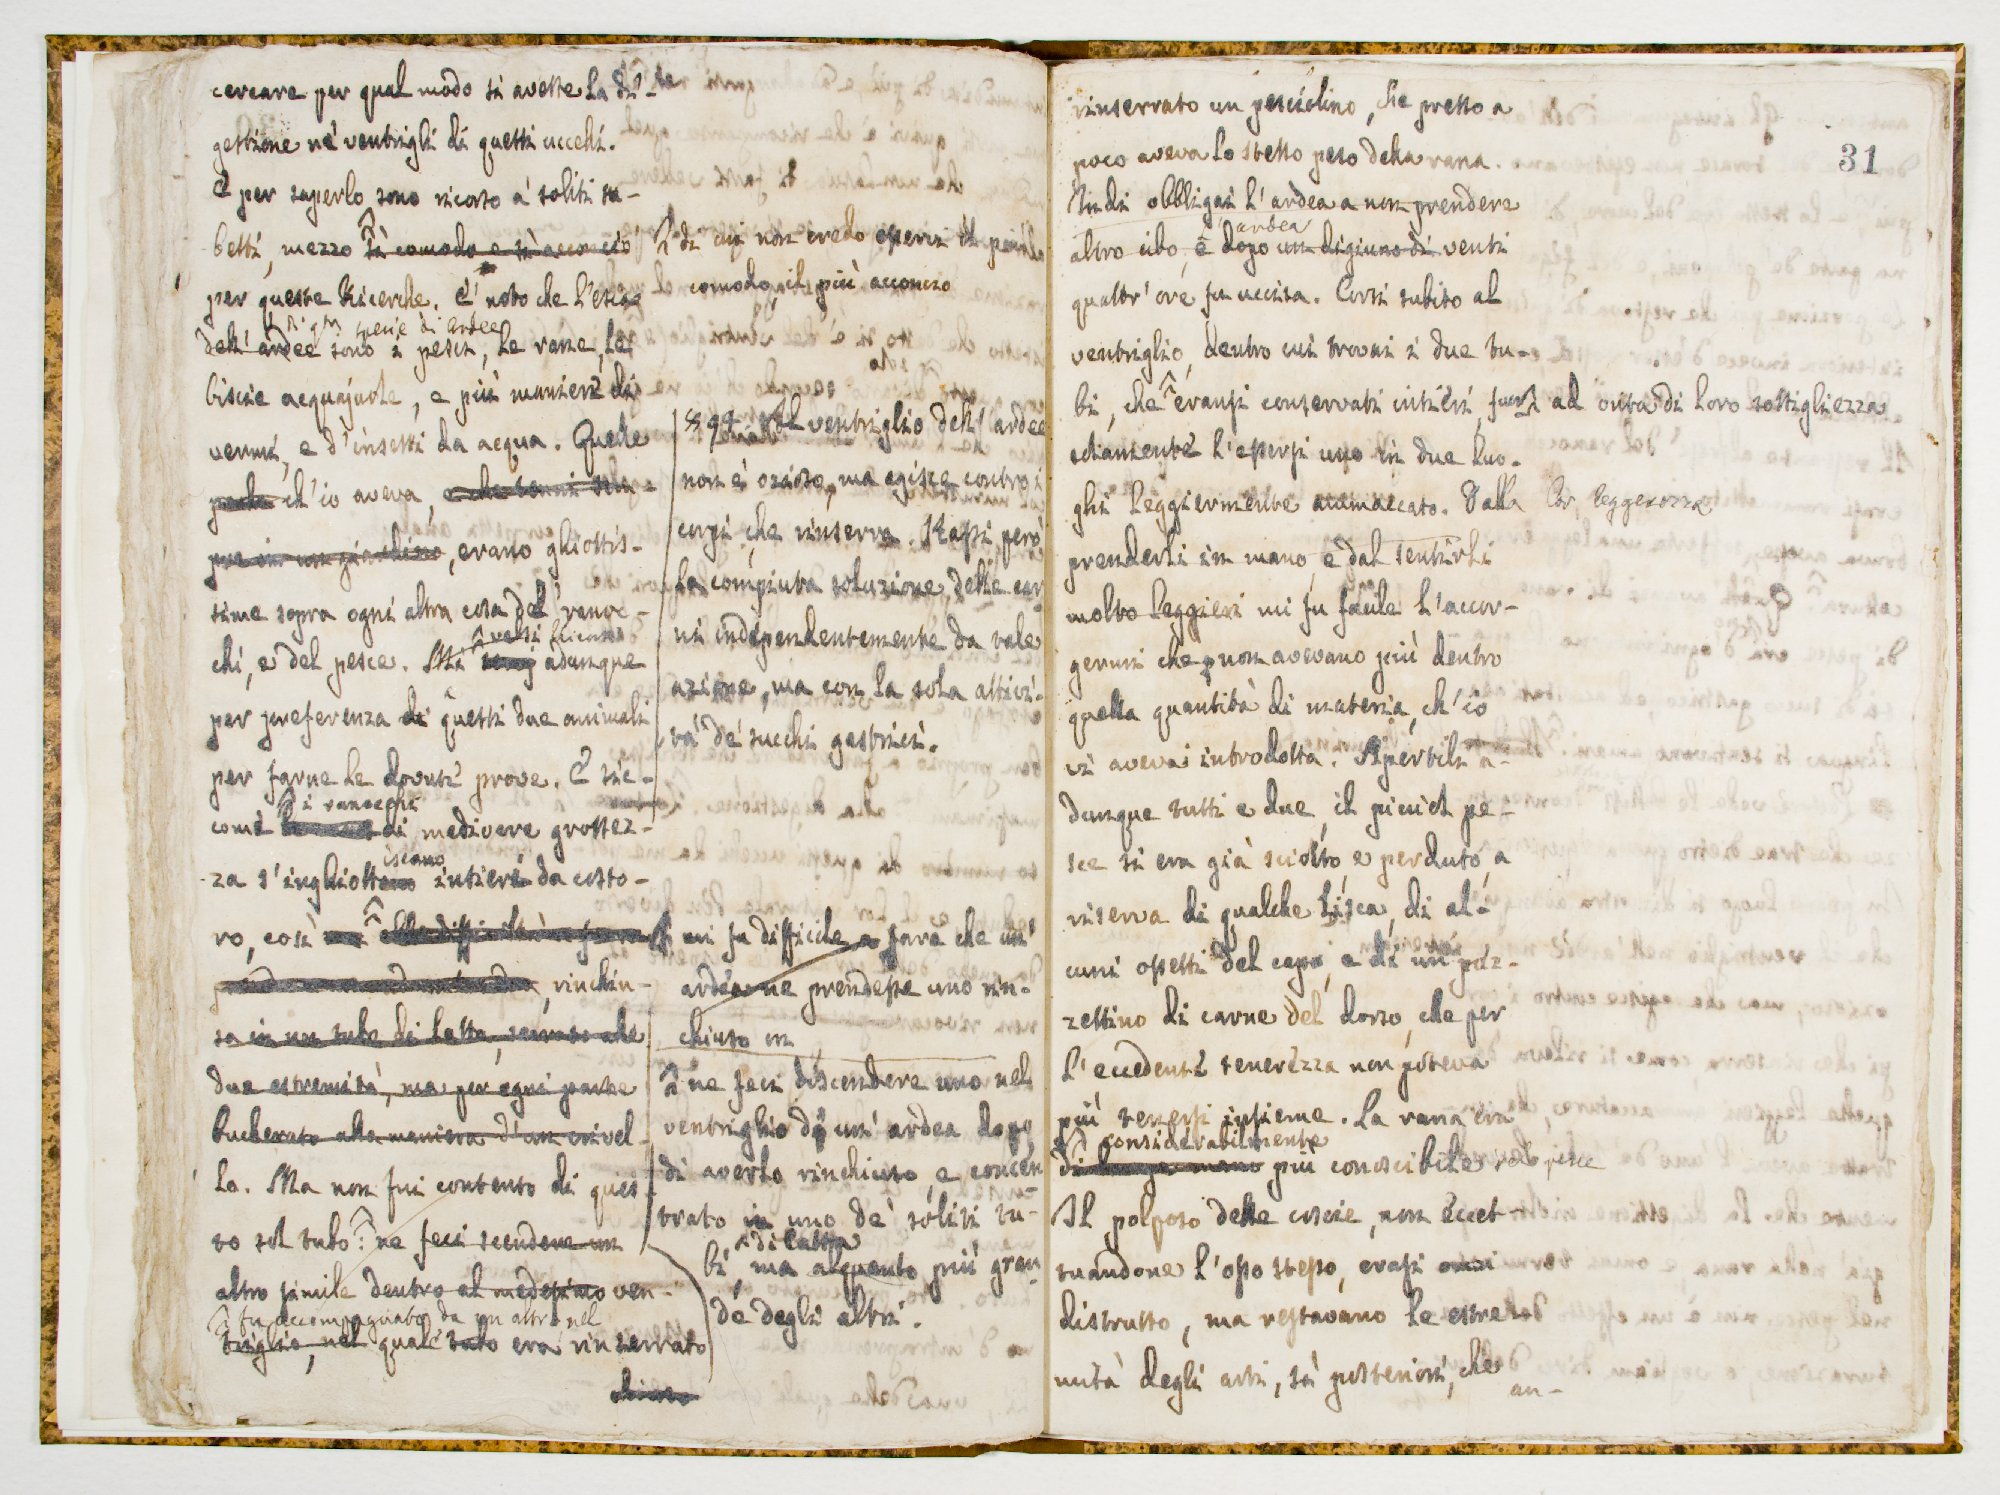 cercare per qual modo si avesse la di-
gestione ne' ventrigli di questi uccelli.
E per saperlo sono ricorso a' soliti tu-
betti, mezzo sì comodo e sì acconcio
per queste ricerche. E' noto che l'esca
specie di ardee
dell' ardee sono i pesci, le rane, le
biscie acquajuole, e più maniere di
vermi, e d'insetti da acqua. Quelle
ch'io aveva,
erano ghiottis-
sime sopra ogni altra cosa del ranoc-
chi, e del pesce. Mi adunque
per preferenza di questi due animali
per farne le dovute prove. E sic-
i ranocchi
come di mediocre grossez-
za s'inghiottiscono intieri da costo-
ro, così
rinchiu-
sa in un tubo di latta, serrato alle
due estremità, ma per ogni parte
bucherato alla maniera d'un crivel-
lo. Ma non fui contento di ques-
to sol tubo: ne feci scendere un
altro simile dentro al medesimo ven-
fu accompagnato da un altro nel
triglio, nel qual tubo era rinserrato
chiuso
di cui non credo esservi il più
comodo, il più acconcio
Il ventriglio dell' ardee
non è ozioso, ma agisce contro i
corpi che rinserra. Hassi però
la compiuta soluzione delle car
ni independentemente da tale
azione, ma con la sola attivi-
tà de' succhi gastrici.
mi fu difficile a fare che un'
ardea ne prendesse uno rin-
chiuso in
ne feci discendere uno nel
ventriglio di un' ardea dopo
di averlo rinchiuso, e concen
trato in uno de' soliti tu-
di latta
bi, ma alquanto più gran
de degli altri.
31
rinserrato un pesciolino, che presso a
poco aveva lo stesso peso della rana.
Indi obbligai l'ardea a non prendere
ardea
altro cibo, e dopo un digiuno di venti
quattr' ore fu uccisa. Corsi subito al
ventriglio, dentro cui trovai i due tu-
bi, che eransi conservati intieri, ad onta di loro sottigliezza
solamente l'essersi uno in due luo-
ghi leggiermente ammaccato. Dalla lor leggerezza
prenderli in mano, e dal sentirli
molto leggieri mi fu facile l'accor-
germi che non avevano più dentro
quella quantità di materia, ch'io
vi avevai introdotta. Apertili a-
dunque tutti e due, il picciol pe-
sce si era già sciolto, e perduto, a
riserva di qualche lisca, di al-
cuni ossetti del capo, e di un pez-
zettino di carne del dorso, che per
l'eccedente tenerezza non poteva
più tenersi insieme. La rana era
considerabilmente
di lunga mano più conoscibile del pesce
Il polposo delle coscie, non eccet-
tuandone l'osso stesso, erasi
distrutto, ma restavano le estre
mità degli arti, sì posteriori, che
an-